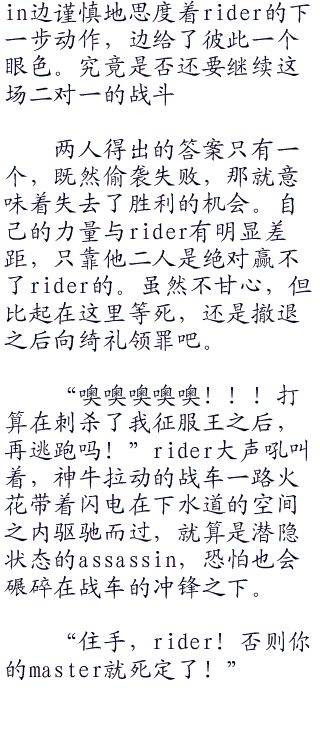 in边谨慎地思度着rider的下
一步动作，边给了彼此一个
眼色。究竟是否还要继续这
场二对一的战斗
两人得出的答案只有一
个，既然偷袭失败，那就意
味着失去了胜利的机会。自
己的力量与rider有明显差
距，只靠他二人是绝对赢不
了rider的。虽然不甘心，但
比起在这里等死，还是撤退
之后向绮礼领罪吧。
“噢噢噢噢噢！！！打
算在刺杀了我征服王之后，
再逃跑吗！”rider大声吼叫
着，神牛拉动的战车一路火
花带着闪电在下水道的空间
之内驱驰而过，就算是潜隐
状态的assassin，恐怕也会
碾碎在战车的冲锋之下。
“住手，rider！否则你
的master就死定了！”